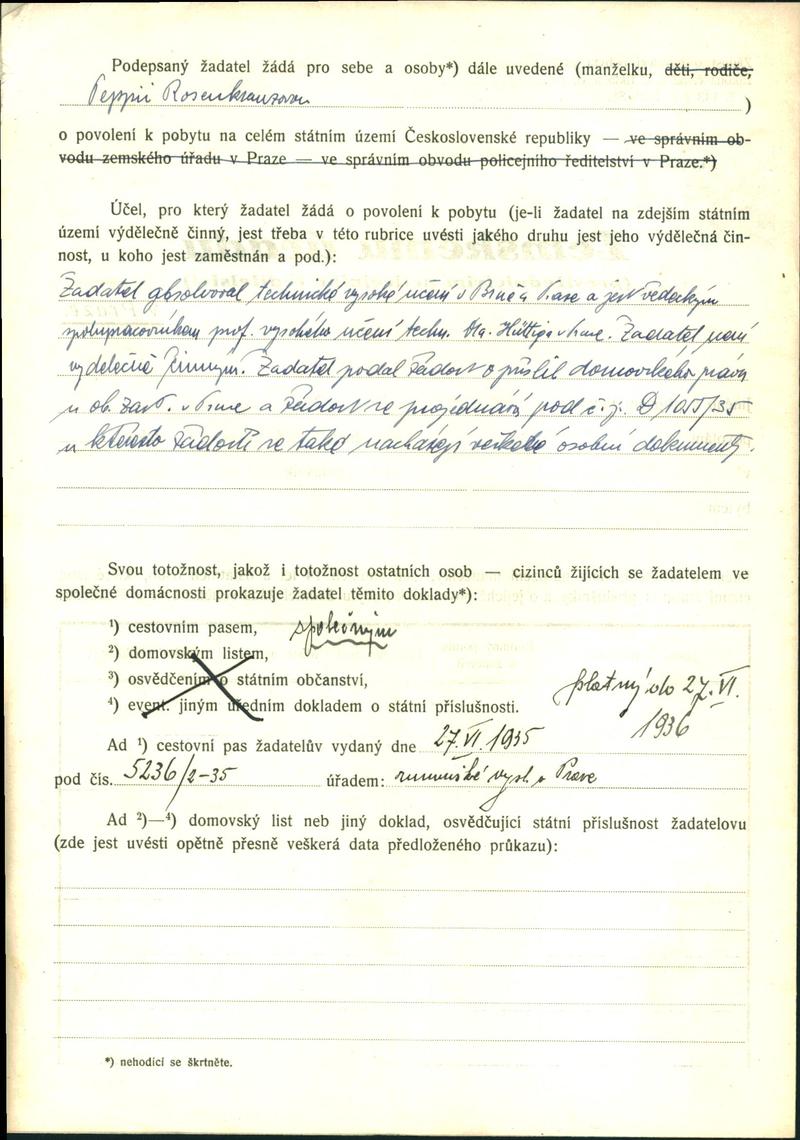 Podepsaný žadatel žádá pro sebe a osoby*) dále uvedené (manželku, děti, rodiče,
Peppii Rosenkranzovou )
o povolení k pobytu na celém státním území Československé republiky — ve správním ob-
vodu zemského úřadu v Praze — ve správním obvodu policejního ředitelství v Praze.*)
Účel, pro který žadatel žádá o povolení k pobytu (je-li žadatel na zdejším státním
území výdělečně činný, jest třeba v této rubrice uvésti jakého druhu jest jeho výdělečná čin-
nost, u koho jest zaměstnán a pod.):
Žadatel absolvoval technické vysoké učení v Brně a Praze a jest vědeckým
spolupracovníkem prof. vysokého učení techn. Hüttiga v Praze. Žadatel není
výdělečně činným. Žadatel podal žádost o příslib domovského práva
u ob. zast. v Praze a žádost se projednává pod č.j. D 1055/35
u kterésto žádosti se také nacházejí veškeré osobní dokumenty.
Svou totožnost, jakož i totožnost ostatních osob — cizinců žijících se žadatelem ve
společné domácnosti prokazuje žadatel těmito doklady*):
¹) cestovním pasem, společným
²) domovským listem,
³) osvědčením o státním občanství,
platný do 27. VI.
⁴) event. jiným úředním dokladem o státní příslušnosti.
1936
Ad ¹) cestovní pas žadatelův vydaný dne 27. VI. 1935
pod čís. 5236/2-35 úřadem: rumunské vysl. v Praze
Ad ²)—⁴) domovský list neb jiný doklad, osvědčující státní příslušnost žadatelovu
(zde jest uvésti opětně přesně veškerá data předloženého průkazu):
*) nehodící se škrtněte.